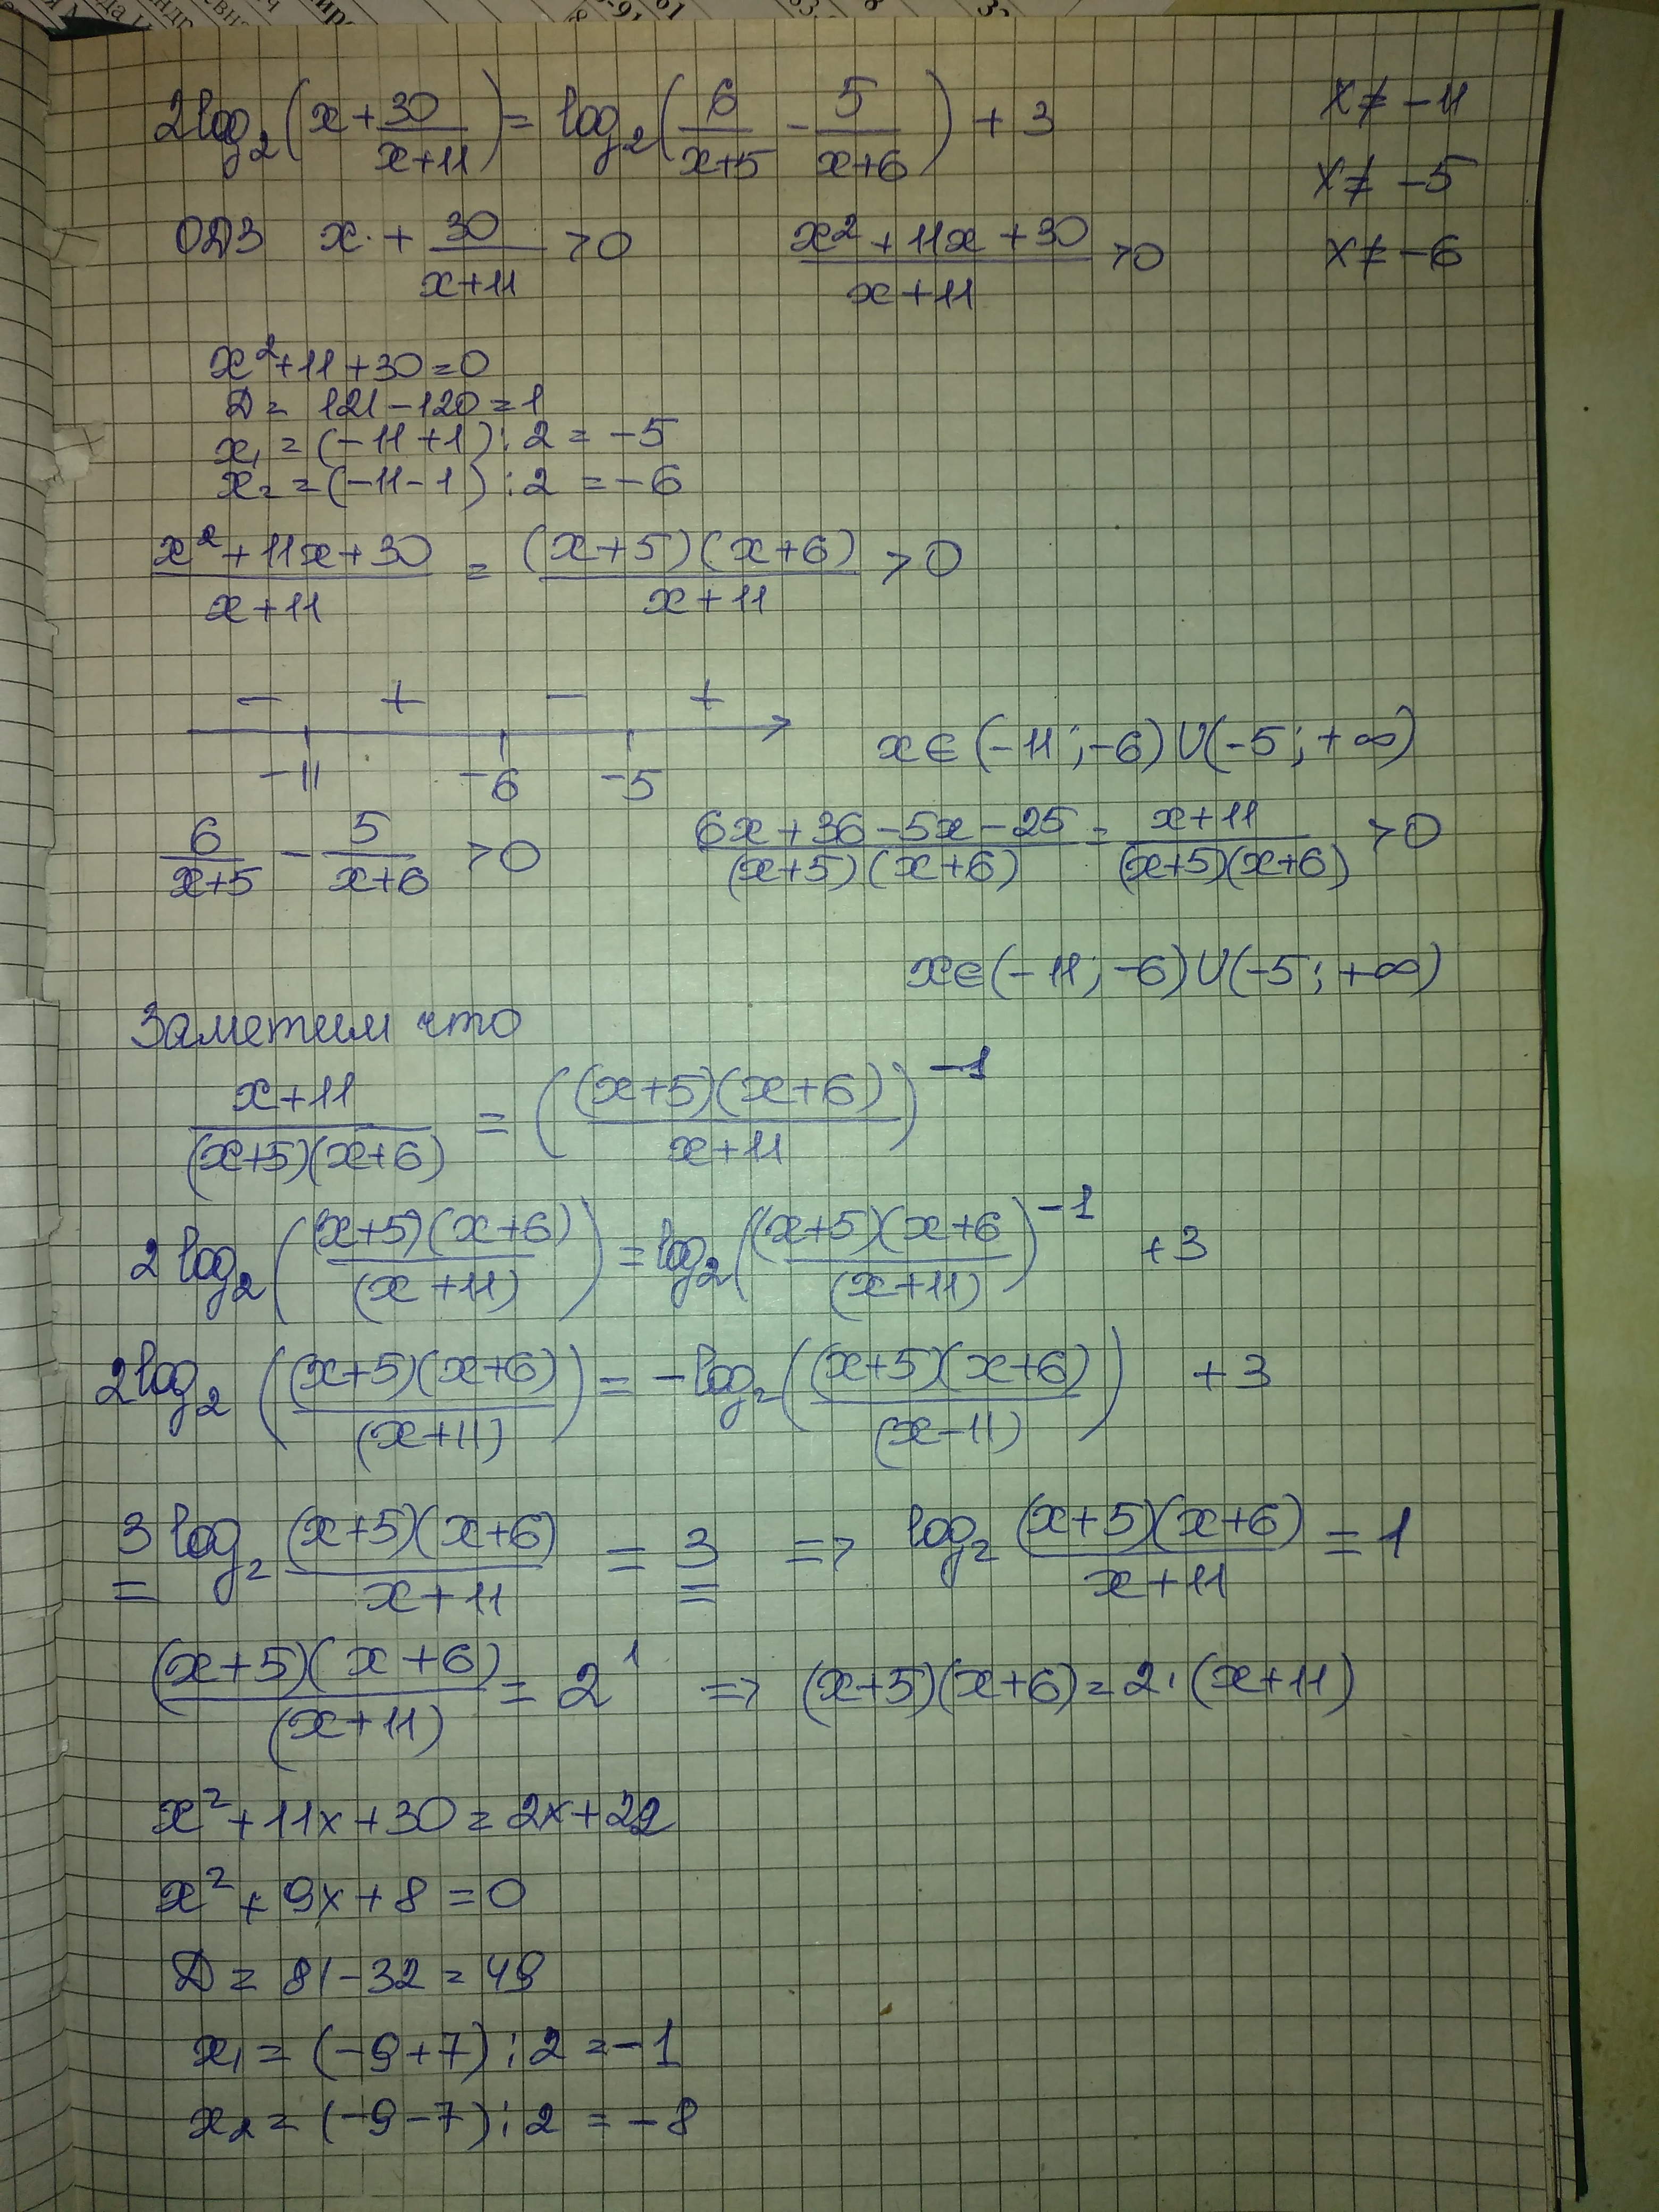 2log₂(x + 30/(x+11)) = log₂(6/(x+5) - 5/(x+6)) + 3
x ≠ -11
x ≠ -5
x ≠ -6
ОДЗ x + 30/(x+11) > 0 (x² + 11x + 30)/(x+11) > 0
x² + 11 + 30 = 0
Д = 121 - 120 = 1
x₁ = (-11 + 1) : 2 = -5
x₂ = (-11 - 1) : 2 = -6
(x² + 11x + 30)/(x+11) = (x+5)(x+6)/(x+11) > 0
- + - +
-11 -6 -5
x ∈ (-11; -6) U (-5; +∞)
6/(x+5) - 5/(x+6) > 0 (6x + 36 - 5x - 25)/((x+5)(x+6)) = (x+11)/((x+5)(x+6)) > 0
x ∈ (-11; -6) U (-5; +∞)
Заметим что
(x+11)/((x+5)(x+6)) = ((x+5)(x+6)/(x+11))⁻¹
2 log₂((x+5)(x+6)/(x+11)) = log₂((x+5)(x+6/(x+11))⁻¹ + 3
2log₂((x+5)(x+6)/(x+11)) = -log₂((x+5)(x+6)/(x-11)) + 3
3 log₂ (x+5)(x+6)/(x+11) = 3 => log₂ (x+5)(x+6)/(x+11) = 1
(x+5)(x+6)/(x+11) = 2¹ => (x+5)(x+6) = 2·(x+11)
x² + 11x + 30 = 2x + 22
x² + 9x + 8 = 0
Д = 81 - 32 = 49
x₁ = (-9 + 7) : 2 = -1
x₂ = (-9 - 7) : 2 = -8